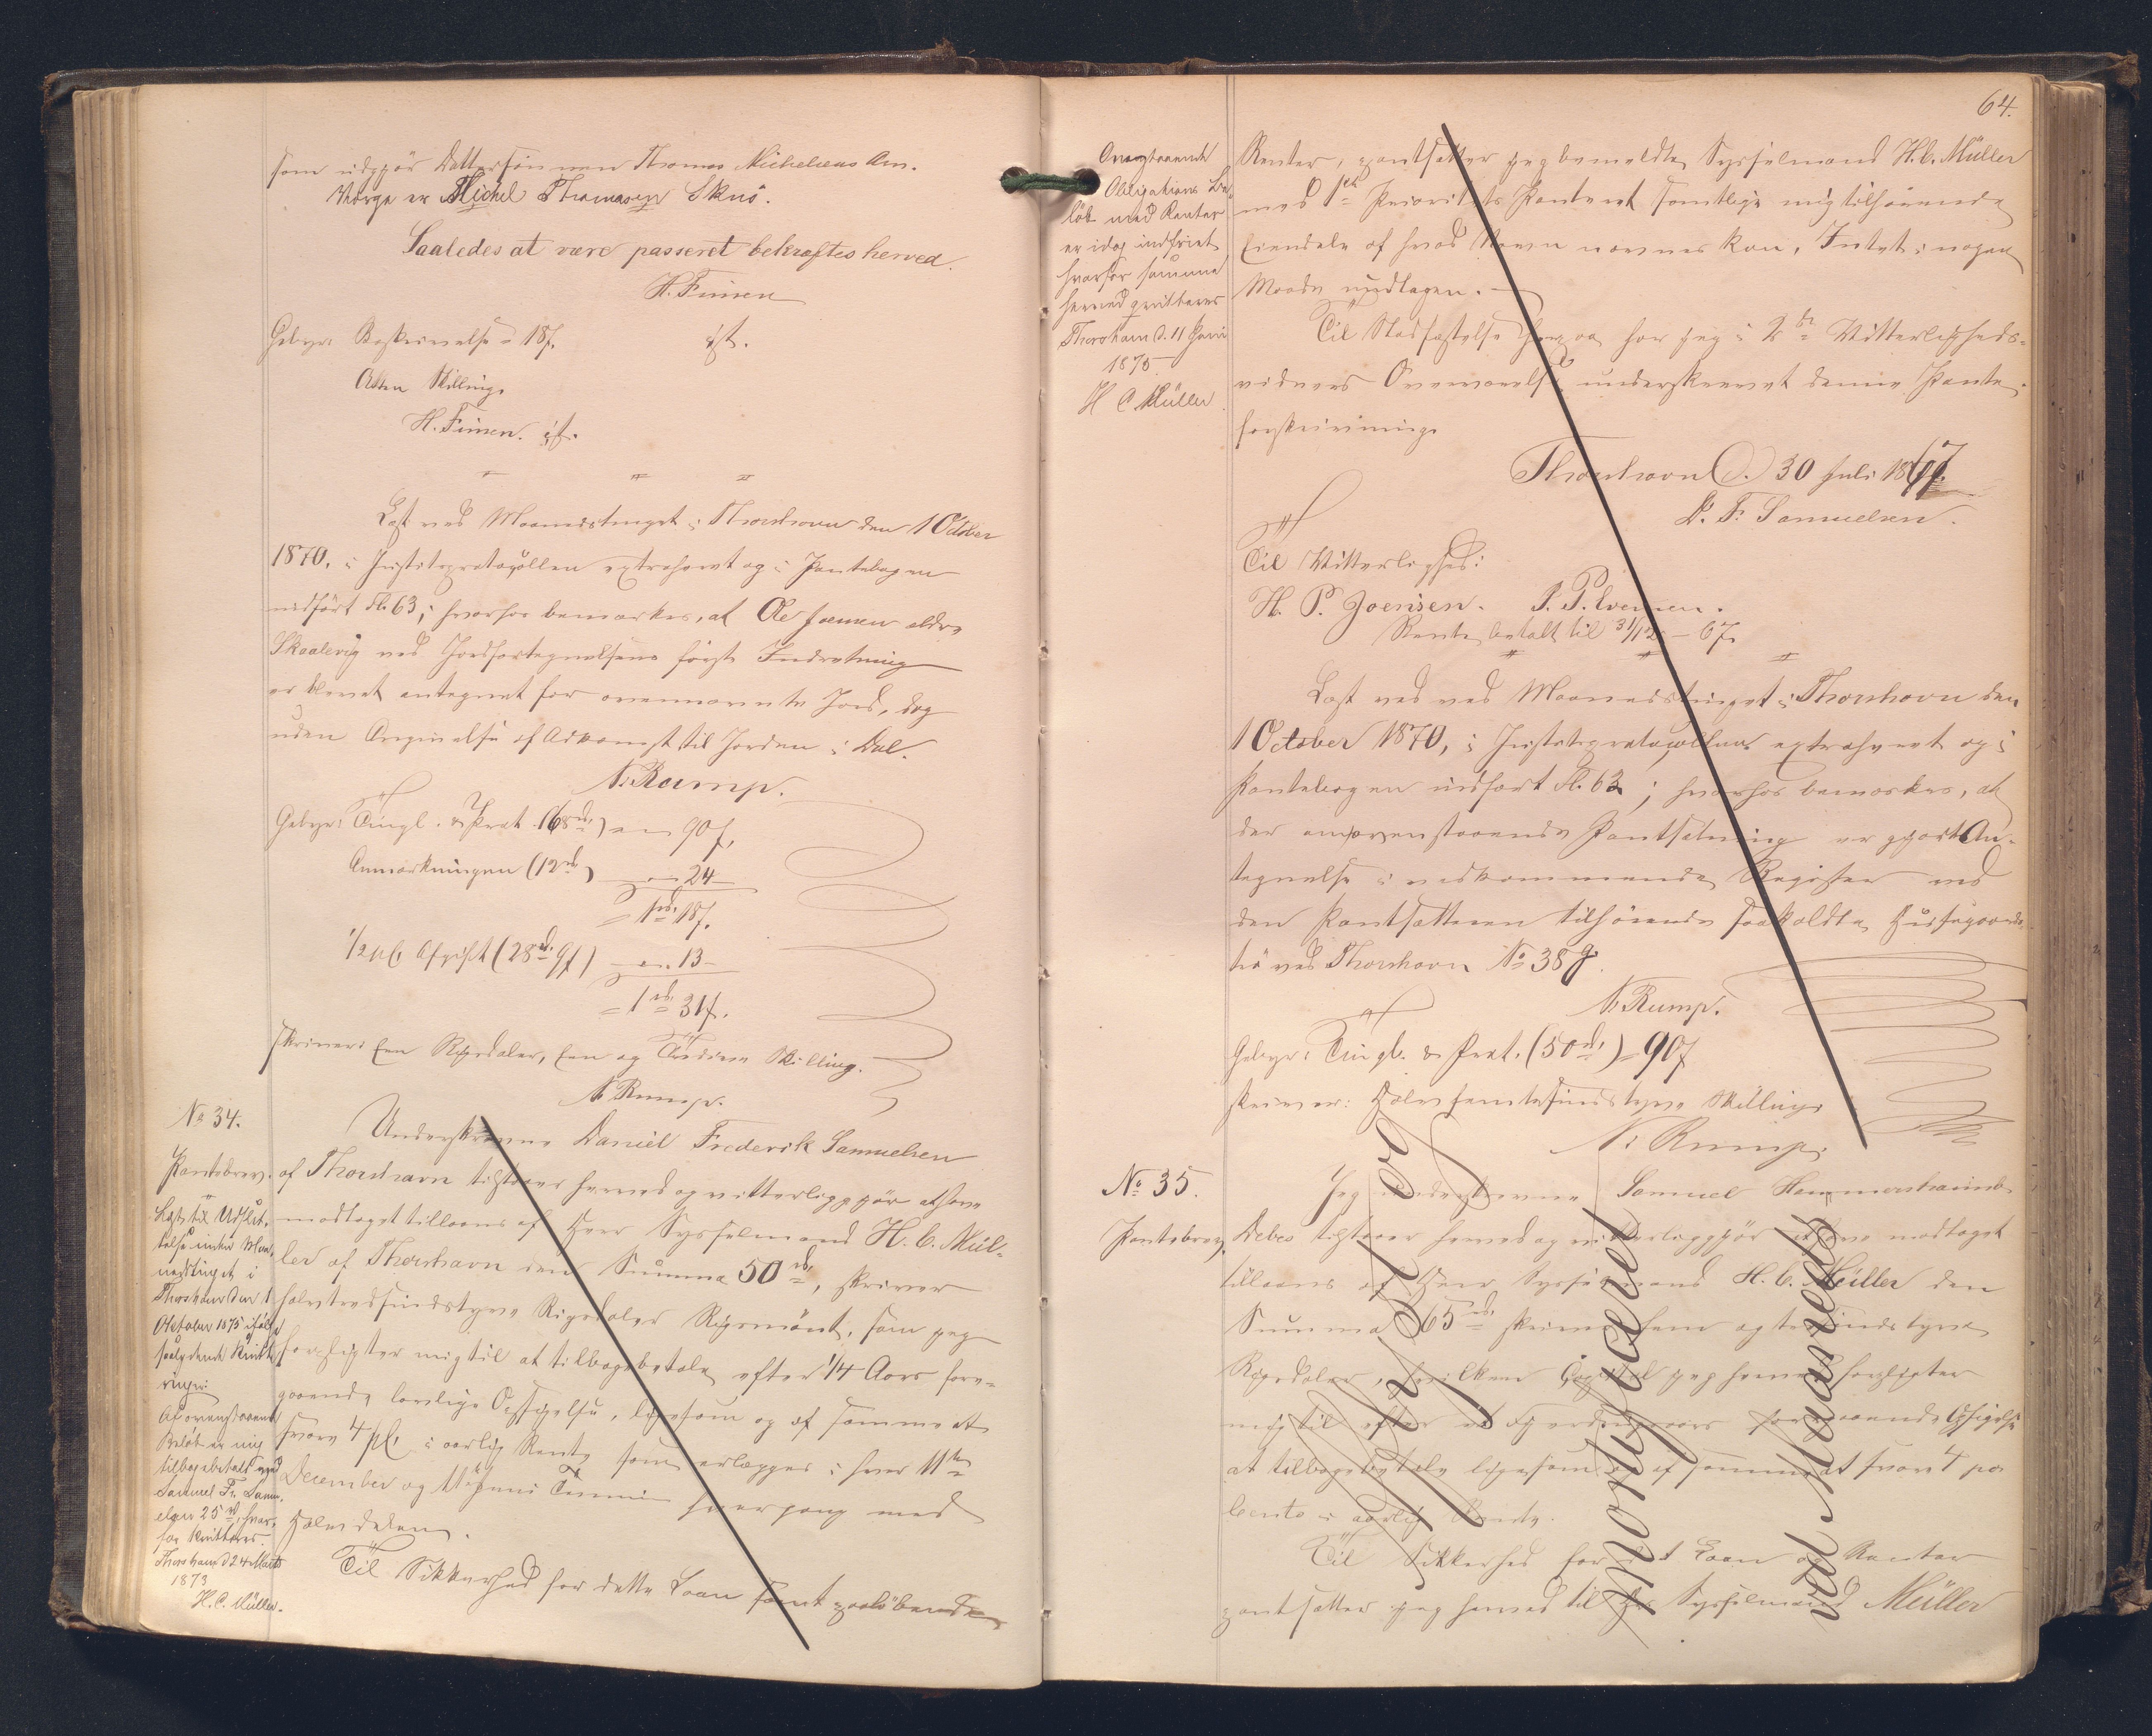 som udgjør Dattersønnen Thomas Michelsens Arv.
Værge er Michel Thomasen Skuø.
Saaledes at være passeret bekræftes herved.
H. Finsen
Gebyr: Beskrivelse = 18 ß. cst.
Atten Skilling.
H. Finsen. cst.
Læst ved Maanedstinget i Thorshavn den 1 October
1870, i Justitsprotocollen extraheret og i Pantebogen
indført Fl. 63; hvorhos bemærkes, at Ole Joensen ældre
Skaalevig ved Jordfortegnelsens første Indretning
er blevet antegnet for ovennævnte Jord, dog
uden Angivelse af Adkomst til Jorden i Dal.
N. Rump.
Gebyr: Tingl. & Prot. (68 rd.) = 90 ß.
Anmærkningen (12 rd.) 24
= 1 rd. 18 ß.
1/2 pC. Afgift (28 rd. 9 ß) 13
= 1 rd. 31 ß.
skriver: Een Rigsdaler, Een og Tredive Skilling.
N. Rump.
No 34.
Pantebrev.
Læst til Udslet-
telse inden Maa-
nedstinget i
Thorshavn den 1
Oktober 1875 ifølge
saalydende Kvitte-
ringer:
Af ovenstaaende
Beløb er mig
tilbagebetalt ved
Samuel Fr. Samu-
elsen 25 rd, hvor-
for kvitteres.
Thorshavn d 24 Marts
1873
H. C. Müller.
Underskrevne Daniel Frederik Samuelsen
af Thorshavn tilstaaer herved og vitterliggjør at have
modtaget tillaans af Herr Sysselmand H. C. Mül-
ler af Thorshavn den Summa 50 rd., skriver
halvtredsindstyve Rigsdaler Rigsmønt, som jeg
forpligter mig til at tilbagebetale efter 1/4 Aars fore-
gaaende lovlige Opsigelse, ligesom og af samme at
svare 4 pC. i aarlig Rente som erlægges i hver 11te
December og 11te Juni Termin hver gang med
Halvdelen.
Til Sikkerhed for dette Laan samt paaløbende
64.
Ovenstaaende
Obligations Be-
løb med Renter
er idag indfriet
hvorfor samme
herved qvitteres
Thorshavn d. 11 Juni
1875
H C Müller.
Renter, pantsætter jeg bemeldte Sysselmand H. C. Müller
med 1ste Prioritets Panteret samtlige mig tilhørende
Eiendele af hvad Navn nævnes kan, Intet i nogen
Maade undtagen.
Til Stadfæstelse herpaa har jeg i 2de Vitterligheds-
vidners Overværelse underskrevet denne Pante-
forskrivning.
Thorshavn d. 30 Juli 1867.
D. F. Samuelsen.
Til Vitterlighed:
H. P. Joensen. P. P. Evensen.
Rente betalt til 31/12 - 67.
Læst ved ved Maanedstinget i Thorshavn den
1 October 1870, i Justitsprotocollen extraheret og i
Pantebogen indført Fl. 63; hvorhos bemærkes, at
der om ovenstaaende Pantsætning er gjort An-
tegnelse i vedkommende Register ved
den Pantsætteren tilhørende saakaldte
trø ved Thorshavn No 38 g.
N. Rump.
Gebyr: Tingl. & Prot. (50 rd.) = 90 ß
skriver: Halvfemtesindstyve Skilling.
N. Rump.
No 35.
Pantebrev.
Jeg underskrevne Samuel Hammershaimb
Debes tilstaaer herved og vitterliggjør at have modtaget
tillaans af Herr Sysselmand H. C. Müller den
Summa 65 rd. skriver fem og tresindstyve
Rigsdaler, hvilken Capital jeg herved forpligter
mig til efter et Fjerdingaars foregaaende Opsigelse
at tilbagebetale ligesom og af samme at svare 4 pro
Cento i aarlig Rente.
Til Sikkerhed for dette Laan og Renter
pantsætter jeg herved til Hr Sysselmand Müller
mortificeret
ved Maaneds-